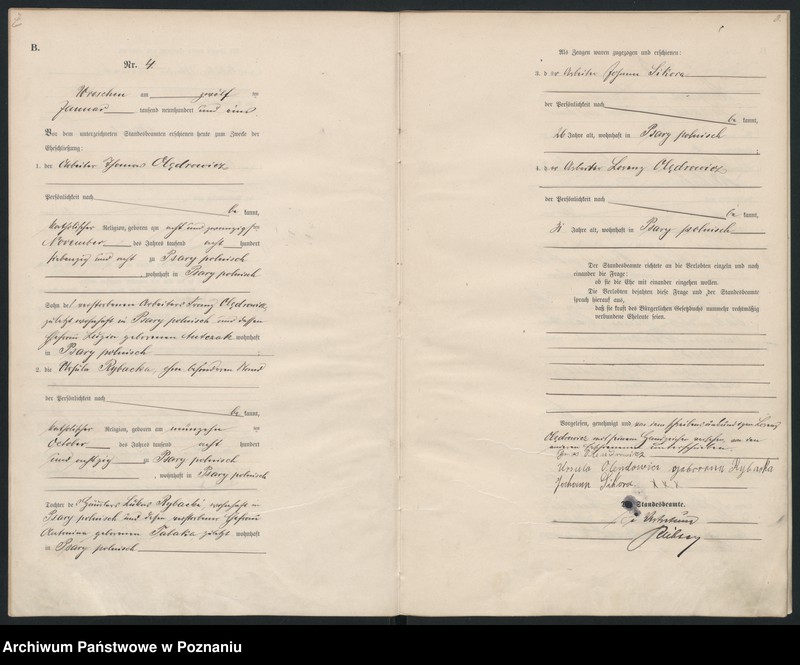 B.
Nr. 4.
Wreschen am zwölf ten
Januar tausend neunhundert und eins.
Vor dem unterzeichneten Standesbeamten erschienen heute zum Zwecke der
Eheschließung:
1. der Arbeiter Thomas Olędrowicz
der Persönlichkeit nach
be kannt,
katholischer Religion, geboren am acht und zwanzigsten
November des Jahres tausend acht hundert
siebenzig und acht zu Psary polnisch
, wohnhaft in Psary polnisch
Sohn des verstorbenen Arbeiters Franz Olędrowicz,
zuletzt wohnhaft in Psary polnisch und dessen
Ehefrau geborenen wohnhaft
in Psary polnisch
2. die Ursula Rybacka, ohne besonderen Stand
der Persönlichkeit nach
be kannt,
katholischer Religion, geboren am ten
October des Jahres tausend acht hundert
und achtzig zu Psary polnisch
, wohnhaft in Psary polnisch
Tochter des Häuslers Lukas Rybacki, wohnhaft in
Psary polnisch und dessen verstorbener Ehefrau
Antonina geborenen Tabaka zuletzt wohnhaft
in Psary polnisch
Als Zeugen waren zugezogen und erschienen:
3. der Arbeiter Johann Sikora
der Persönlichkeit nach
be kannt,
26 Jahre alt, wohnhaft in Psary polnisch
4. der Arbeiter Lorenz Olędrowicz
der Persönlichkeit nach
be kannt,
Jahre alt, wohnhaft in Psary polnisch
Der Standesbeamte richtete an die Verlobten einzeln und nach
einander die Frage:
ob sie die Ehe mit einander eingehen wollen.
Die Verlobten bejahten diese Frage und der Standesbeamte
sprach hierauf aus,
daß sie kraft des Bürgerlichen Gesetzbuchs nunmehr rechtmäßig
verbundene Eheleute seien.
Vorgelesen, genehmigt und von dem schreibensunkundigen Lorenz
Olędrowicz mit seinem Handzeichen versehen, von den
anderen Erschienenen unterschrieben.
Ursula Olendowicz geborene Rybacka
Johann Sikora x x x
Der Standesbeamte.
In Vertretung
Archiwum Państwowe w Poznaniu